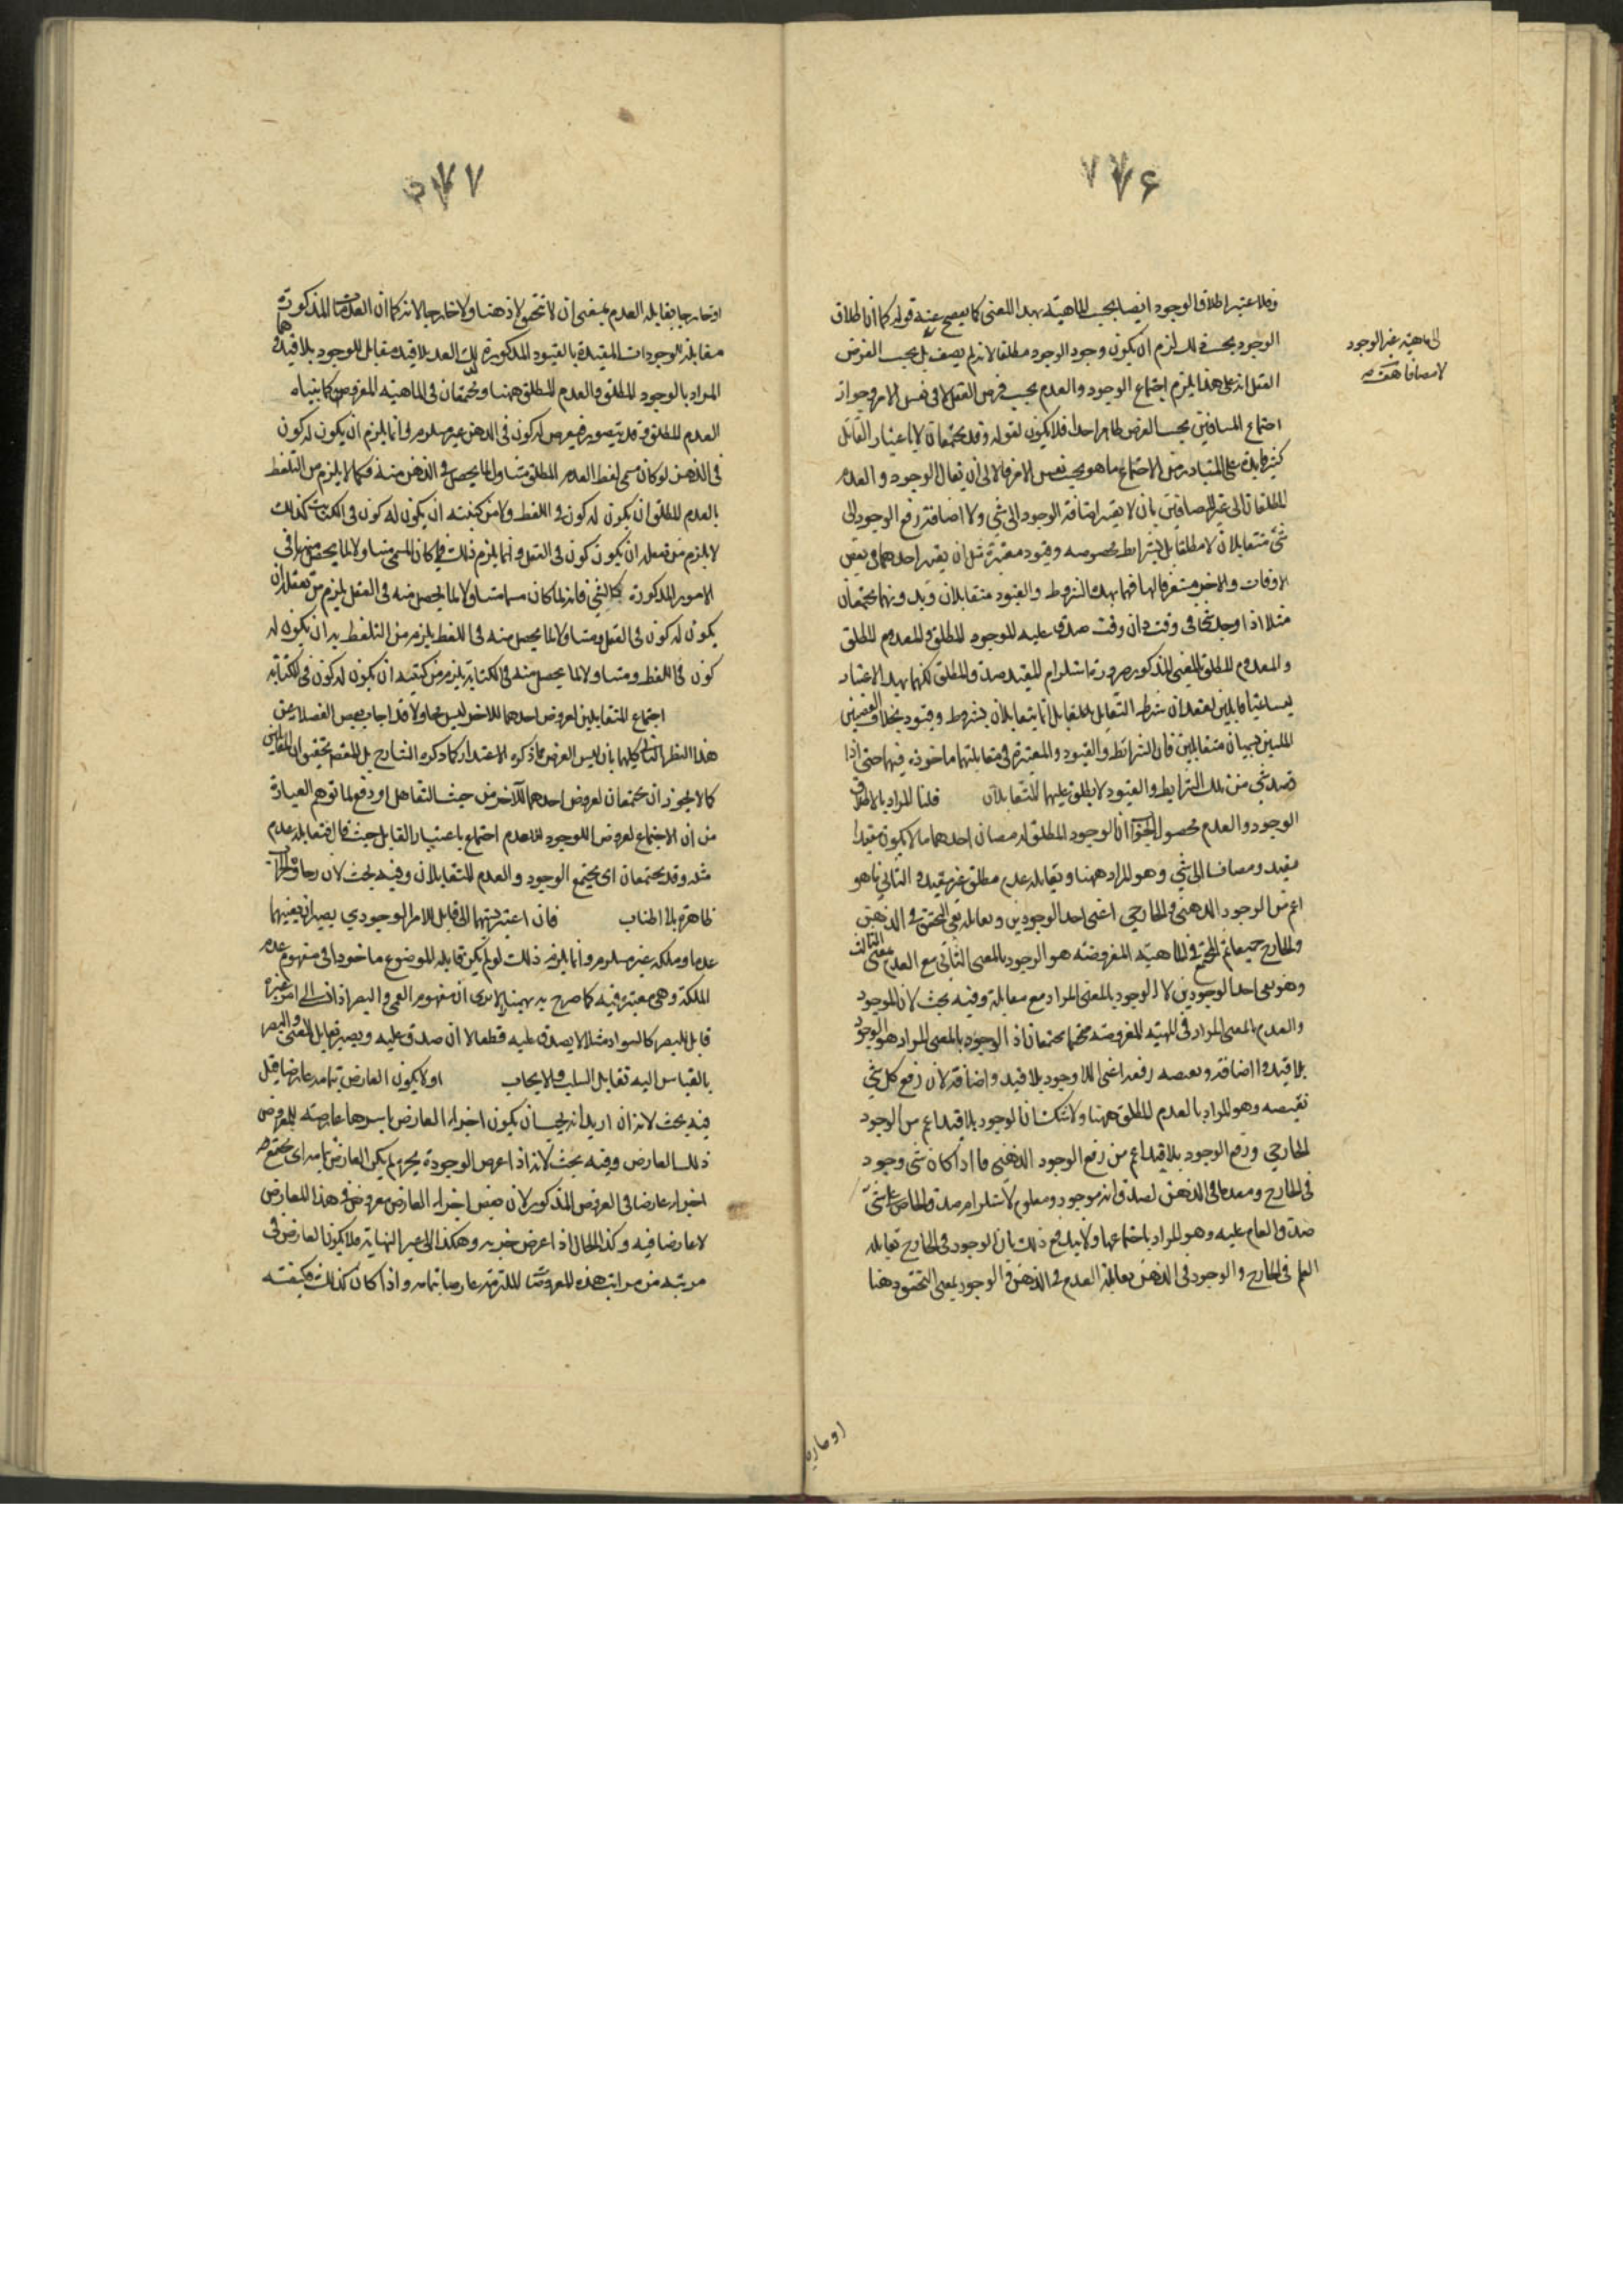 ٧٧۶
وقد اعتبر اطلاق الوجود ايضا بحسب الماهية بهذا المعنى كما يفصح عنه قوله كما ان اطلاق
الى ماهية غير الوجود
لا مضافا
الوجود بحسب ذلك لزم ان يكون وجود الوجود مطلقا لانه لم يضف بل بحسب الفرض
العقل انه على هذا يلزم اجتماع الوجود والعدم بحسب فرض العقل لا فى نفس الامر وجواز
اجتماع المتنافيين بحسب الفرض ظاهر جدا فلا يكون لقوله وقد يجتمعان لا باعتبار التقابل
كثير فايدة على المتبادر من الاجتماع ما هو بحسب نفس الامر فالاولى ان يقال الوجود والعدم
المطلقان اى غير المضافين بان لا يعتبر اضافة الوجود الى شئ ولا اضافة رفع الوجود الى
شئ متقابلان لا مطلقا بل بشرايط مخصوصه وقيود معتبرة مثل ان يعتبر احدهما فى بعض
الاوقات والاخر مستغرقا لها فهما بهذه الشروط والقيود متقابلان وبدونهما يجتمعان
مثلا اذا وجد شئ فى وقت دون وقت صدق عليه الموجود المطلق والمعدوم المطلق
والمعدوم المطلق بالمعنى المذكور ضرورة استلزام المقيد صدق المطلق لكنهما بهذا الاعتبار
ليسا متقابلين لفقدان شرط التقابل فالمتقابلان انما يتقابلان بشروط وقيود بخلاف النقيضين
اللذين يسميان متقابلين فان الشرائط والقيود المعتبرة فى مقابلتهما ماخوذة فيهما حتى اذا
فقد شئ من تلك الشرايط والقيود لا يطلق عليهما المتقابلان قلنا المراد بالاطلاق
الوجود والعدم محصول الجواب ان الوجود المطلق له معنيان احدهما ما لا يكون مقيدا
بقيد ومضافا الى شئ وهو المراد ههنا ويقابله عدم مطلق غير مقيد والثانى ما هو
اعم من الوجود الذهنى والخارجى اعنى احد الوجودين ويقابله نفى التحقق فى الذهن
والخارج جميعا ثم المجتمع فى الماهية المفروضة هو الوجود بالمعنى الثانى مع العدم بمعنى الثالث
وهو نفى احد الوجودين لا الوجود بالمعنى المراد مع مقابله وفيه بحث لان الموجود
والعدم بالمعنى المراد فى المهية المفروضة يجتمعان اذ الوجود بالمعنى المراد هو الوجود
بلا قيد واضافة ونقيضه رفعه اعنى اللاوجود بلا قيد واضافة لان رفع كل شئ
نقيضه وهو المراد بالعدم المطلق ههنا ولا شك ان الوجود بلا قيد اعم من الوجود
الخارجى ورفع الوجود بلا قيد اعم من رفع الوجود الذهنى فاذا كان شئ وجود
فى الخارج ومعدما فى الذهن لصدق انه موجود ومعدوم لاستلزام صدق الخاص على شئ
صدق العام عليه وهو المراد باجتماعهما ولا يندفع ذلك بان الوجود فى الخارج يقابله
العدم فى الخارج والوجود فى الذهن يقابله العدم فى الذهن والوجود بمعنى التحقق ذهنا
او خارجا
٧٧
او خارجا يقابله العدم بمعنى ان لا تحقق لا ذهنا ولا خارجا لانه كما ان العدمات المذكورة
مقابلة الوجودات المقيدة بالقيود المذكورة كذلك العدم بلا قيد مقابل للوجود بلا قيد وهما
المراد بالوجود المطلق والعدم المطلق ههنا ويجتمعان فى الماهية المفروضة كما بيناه
العدم المطلق قد يتصور فيعرض له كون فى الذهن غير مسلم وانما يلزم ان يكون له كون
فى الذهن لو كان مسمى لفظ العدم المطلق متناولا لما يحصل فى الذهن منه فكما لا يلزم من التلفظ
بالعدم المطلق ان يكون له كون فى اللفظ ولا من كتبته ان يكون له كون فى الكتابة كذلك
لا يلزم من تعقله ان يكون كون فى العقل وانما يلزم ذلك فيما كان المسمى متناولا لما يحصل منه فى
الامور المذكورة كالشئ فانه لما كان مسماه متناولا لما يحصل منه فى العقل يلزم من تعقله ان
يكون له كون فى العقل ومتناولا لما يحصل منه فى اللفظ يلزم من التلفظ به ان يكون له
كون فى اللفظ ومتناولا لما يحصل منه فى الكتابة يلزم من كتبته ان يكون له كون فى الكتابة
اجتماع المتقابلين لعروض احدهما للاخر ليس محالا قد اجاب بعض الفضلاء عن
هذا النظر بان ليس الغرض مما ذكره الاعتذار كما ذكره الشارح بل المقصود تحقيق ان المتقابلين
كما لا يجوز ان يجتمعان لعروض احدهما للاخر من حيث التقابل او دفع لما توهم العبارة
من ان الاجتماع لعروض الوجود للعدم اجتماع باعتبار التقابل حيث قال يقابله عدم
مثله وقد يجتمعان اى يجتمع الوجود والعدم المتقابلان وفيه بحث لان
ظاهرة بلا اطناب فان اعتبر نسبتهما الى قابل للامر الوجودى بصيران بعينهما
عدما وملكة غير مسلم وانما يلزم ذلك لو لم يكن قابلية الموضوع ماخوذا فى مفهوم عدم
الملكة وهى معتبرة فيه كما صرح به بهمنيار الا ترى ان مفهوم العمى والبصر اذا نسب الى امر غير
قابل للبصر كالسواد مثلا لا يصدق عليه قطعا لا ان صدق عليه ويصير تقابل العمى والبصر
بالقياس اليه تقابل السلب والايجاب او لا يكون العارض بتمامه عارضا قيل
فيه بحث لانه ان اريد انه يجب ان يكون اجزاء العارض باسرها عارضة لمعروض
ذلك العارض وفيه بحث لانه اذا عرض الوجود لم يكن العارض بتمامه اى بجميع
اجزاءه عارضا فى العروض المذكور لان بعض اجزاء العارض معروض فى هذا العارض
لا عارضا فيه وكذا الحال اذا عرض جزئه وهكذا الى غير النهاية فلا يكون العارض فى
مرتبة من مراتب هذه العروضات المترتبة عارضا بتمامه واذا كان كذلك فكيف